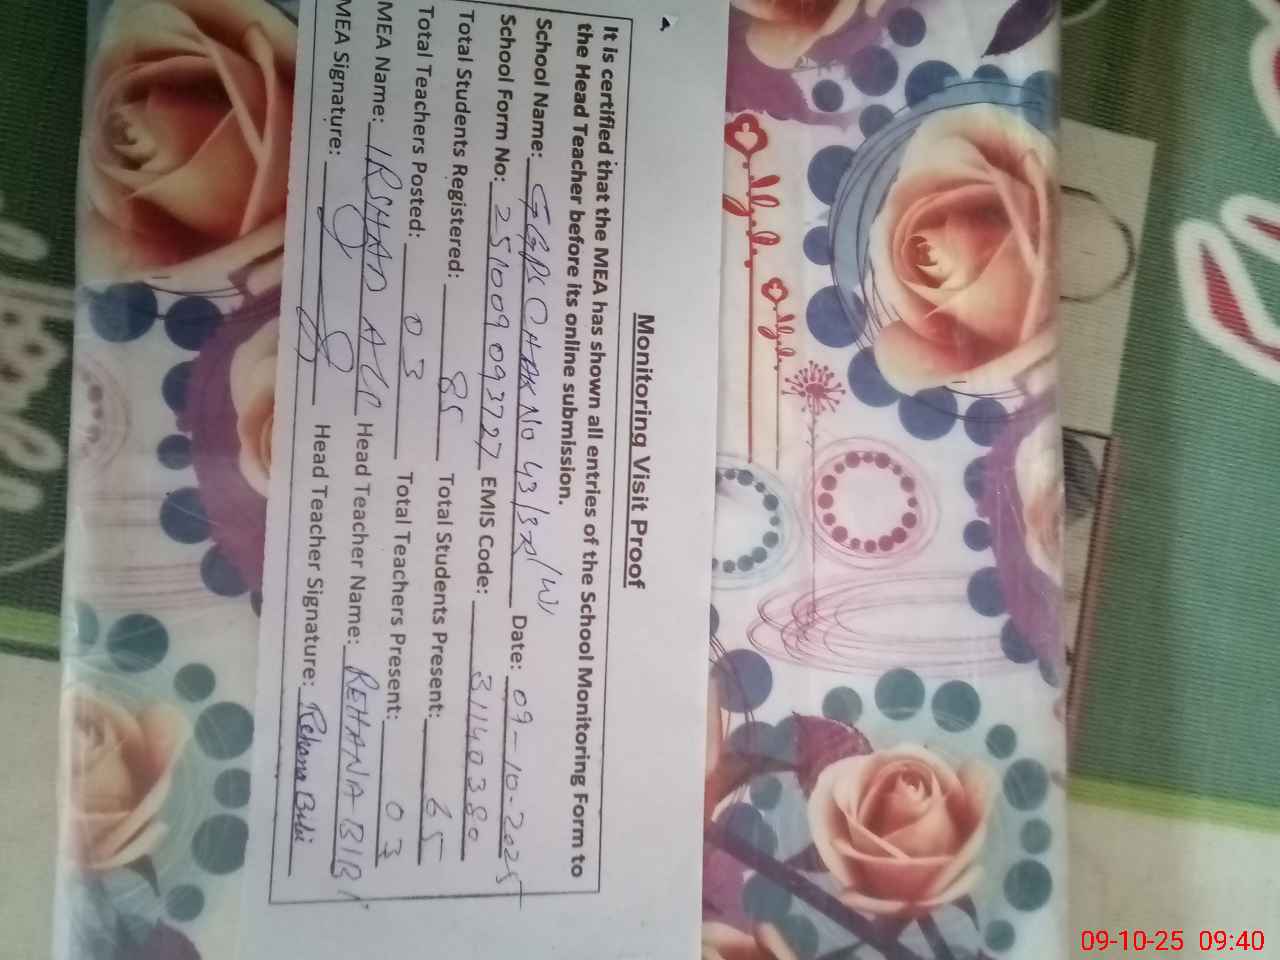 Monitoring Visit Proof
It is certified that the MEA has shown all entries of the School Monitoring Form to
the Head Teacher before its online submission.
School Name: GGPS CHAK No 43/3R/W Date: 09-10-2025
School Form No: 251009093727 EMIS Code: 31140380
Total Students Registered: 85 Total Students Present: 65
Total Teachers Posted: 03 Total Teachers Present: 03
MEA Name: IRSHAD ALI Head Teacher Name: REHANA BIBI
MEA Signature: Head Teacher Signature: Rehana Bibi
09-10-25 09:40